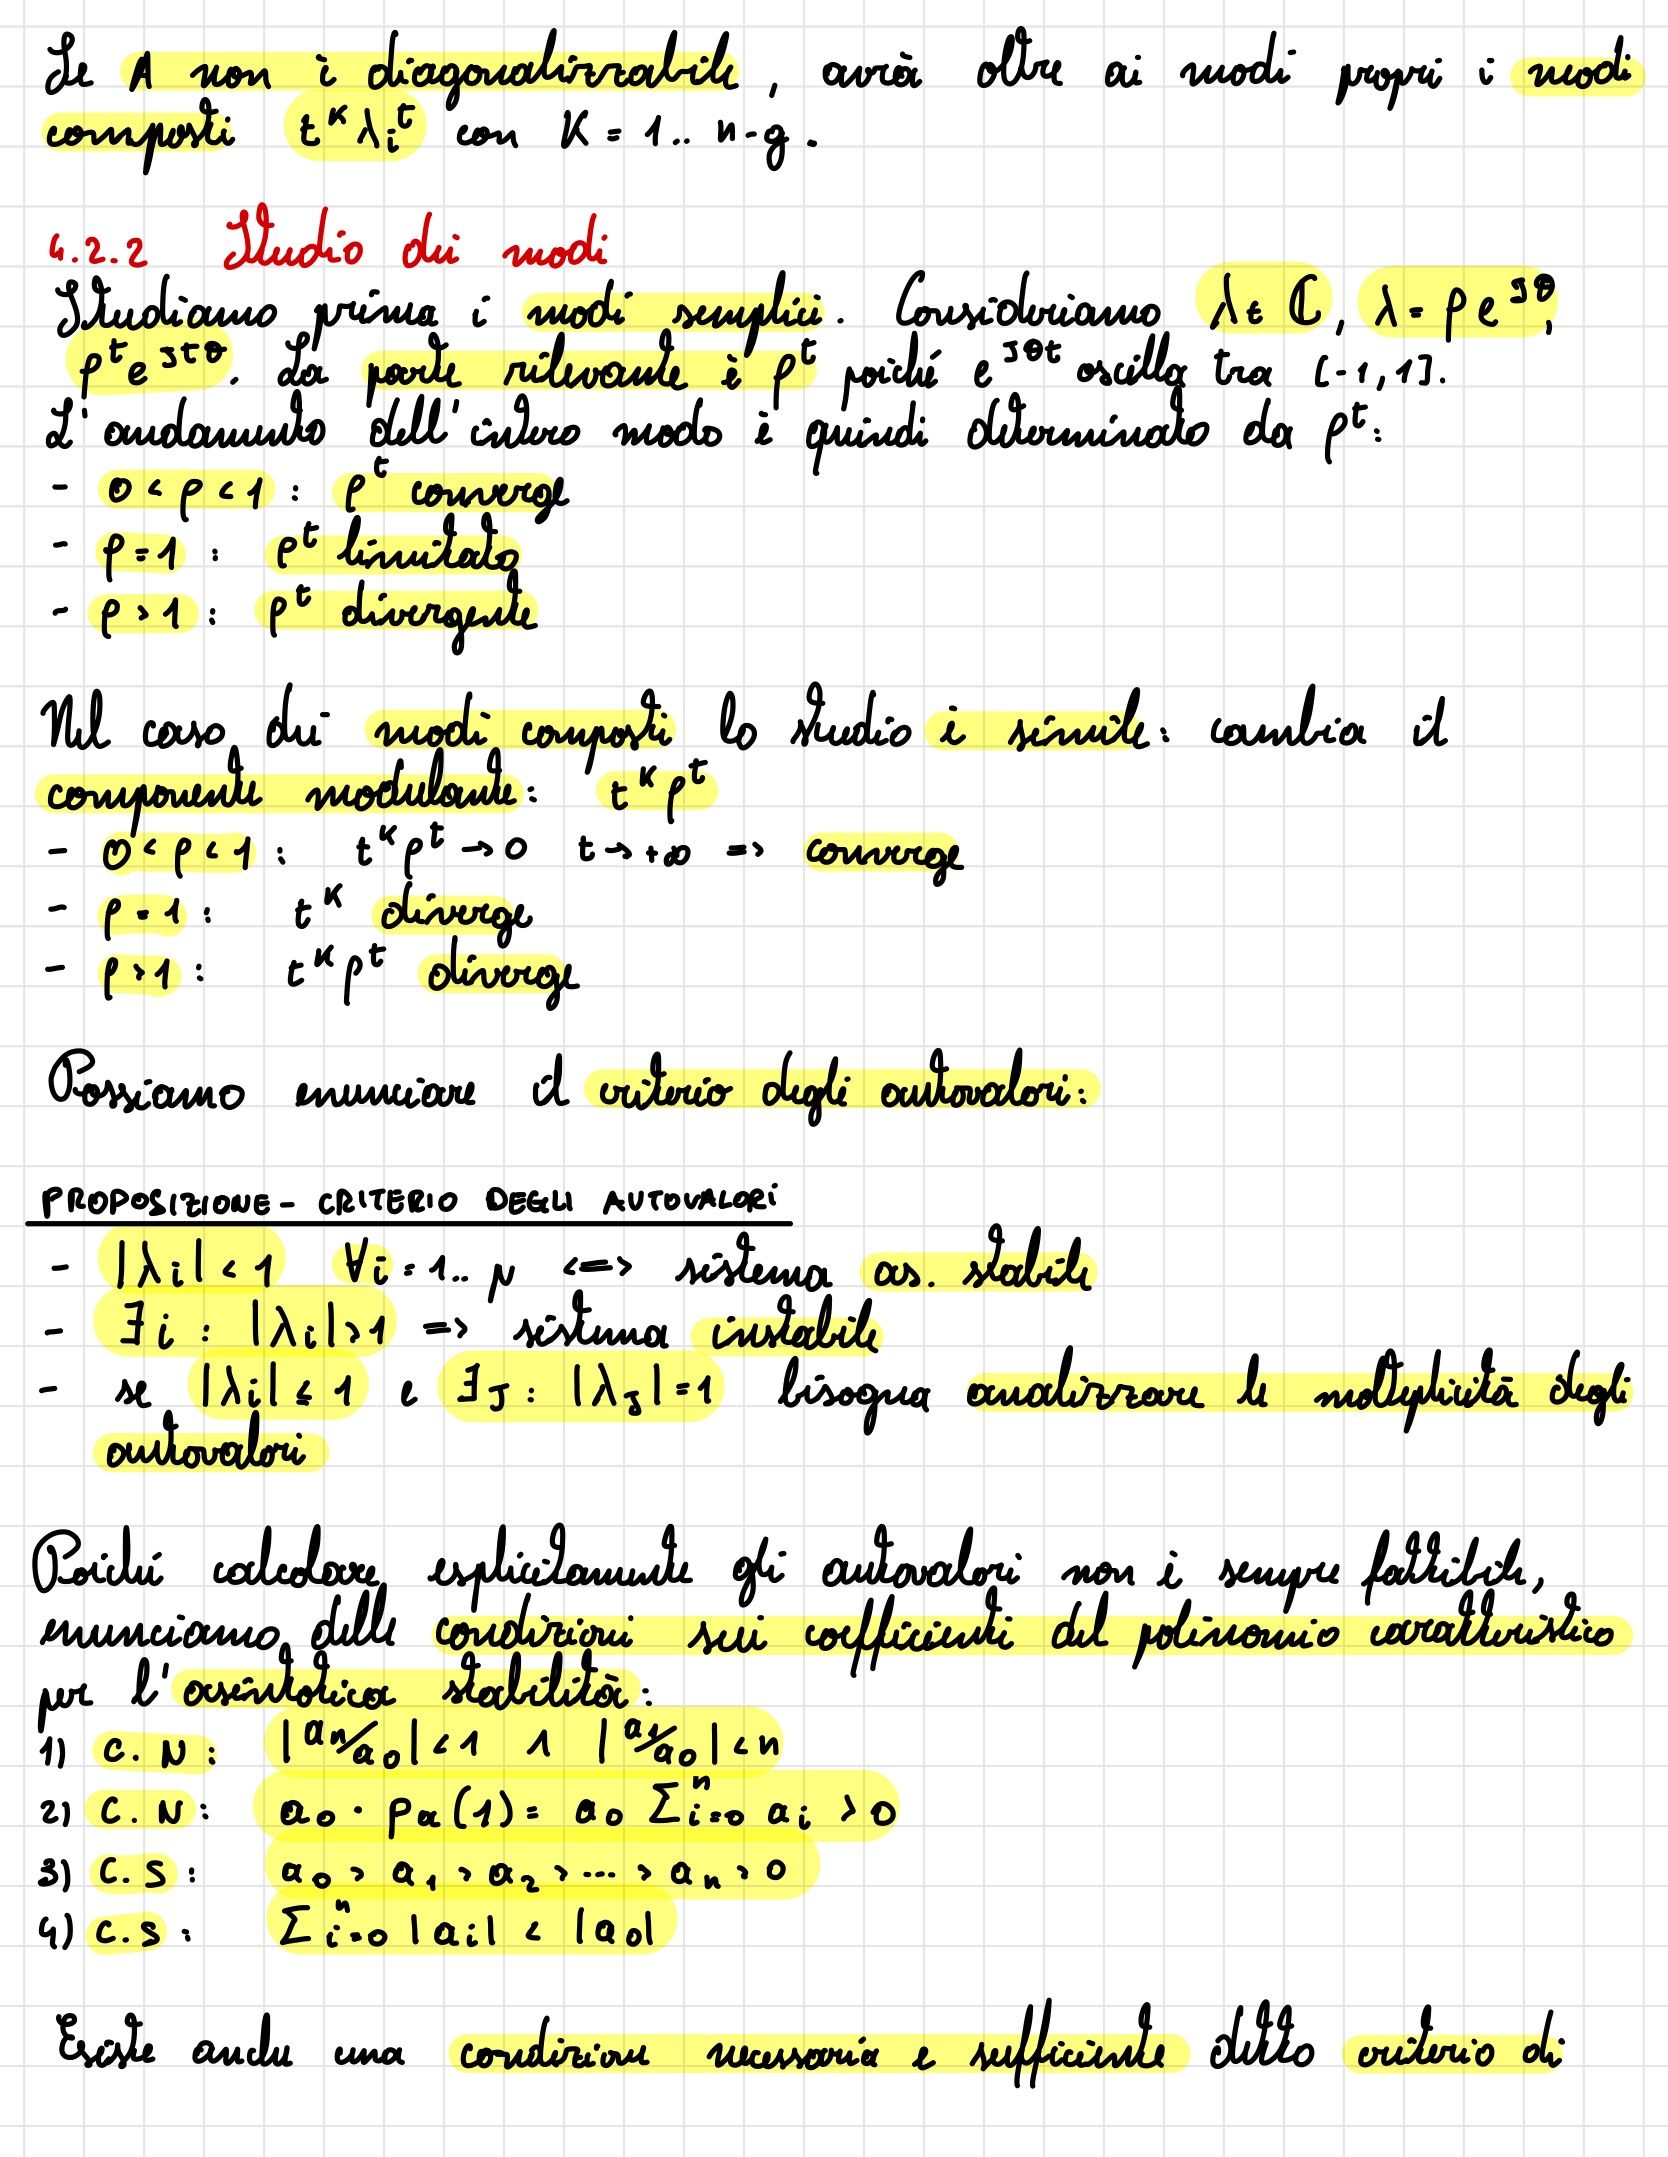 Se A non è diagonalizzabile, avrà oltre ai modi propri i modi
composti t^K λ_i^t con K = 1.. n-g.
4.2.2 Studio dei modi
Studiamo prima i modi semplici. Consideriamo λ ∈ ℂ, λ = ρe^{Jθ},
ρ^t e^{Jtθ}. La parte rilevante è ρ^t poiché e^{Jθt} oscilla tra [-1,1].
L'andamento dell'intero modo è quindi determinato da ρ^t:
- 0 < ρ < 1 : ρ^t converge
- ρ = 1 : ρ^t limitato
- ρ > 1 : ρ^t divergente
Nel caso dei modi composti lo studio è simile: cambia il
componente modulante: t^K ρ^t
- 0 < ρ < 1 : t^K ρ^t → 0 t → +∞ => converge
- ρ = 1 : t^K diverge
- ρ > 1 : t^K ρ^t diverge
Possiamo enunciare il criterio degli autovalori:
PROPOSIZIONE - CRITERIO DEGLI AUTOVALORI
- |λ_i| < 1 ∀i = 1.. μ <=> sistema as. stabile
- ∃i : |λ_i| > 1 => sistema instabile
- se |λ_i| ≤ 1 e ∃J : |λ_J| = 1 bisogna analizzare le molteplicità degli
autovalori
Poiché calcolare esplicitamente gli autovalori non è sempre fattibile,
enunciamo delle condizioni sui coefficienti del polinomio caratteristico
per l'asintotica stabilità:
1) C.N : |a_n/a_0| < 1 ∧ |a_1/a_0| < n
2) C.N : a_0 · p_a(1) = a_0 Σ_{i=0}^n a_i > 0
3) C.S : a_0 > a_1 > a_2 > ... > a_n > 0
4) C.S : Σ_{i=0}^n |a_i| < |a_0|
Esiste anche una condizione necessaria e sufficiente detto criterio di